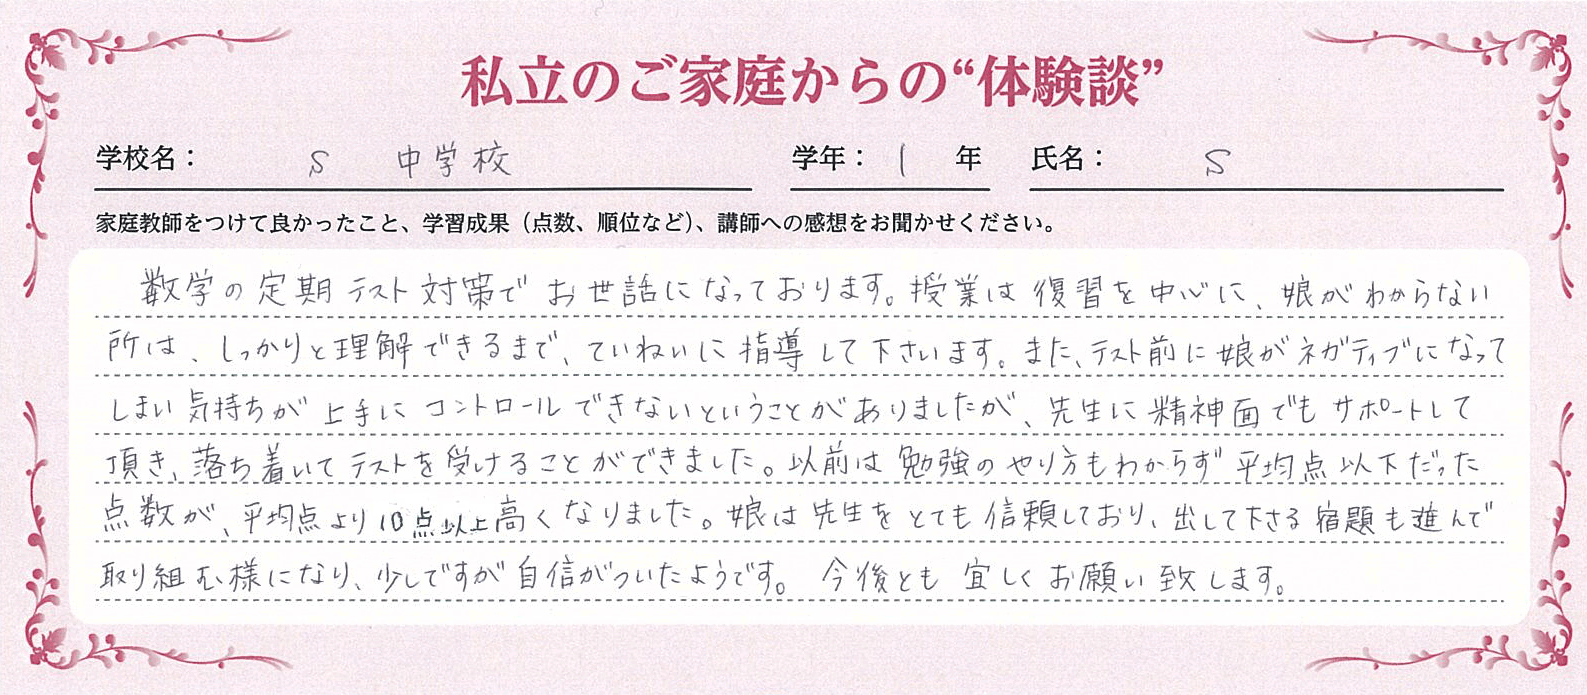 私立のご家庭からの“体験談”
学校名： S 中学校 学年： 1 年 氏名： S
家庭教師をつけて良かったこと、学習成果（点数、順位など）、講師への感想をお聞かせください。
数学の定期テスト対策でお世話になっております。授業は復習を中心に、娘がわからない
所は、しっかりと理解できるまで、ていねいに指導して下さいます。また、テスト前に娘がネガティブになって
しまい気持ちが上手にコントロールできないということがありましたが、先生に精神面でもサポートして
頂き、落ち着いてテストを受けることができました。以前は勉強のやり方もわからず平均点以下だった
点数が、平均点より10点以上高くなりました。娘は先生をとても信頼しており、出して下さる宿題も進んで
取り組む様になり、少しですが自信がついたようです。今後とも宜しくお願い致します。